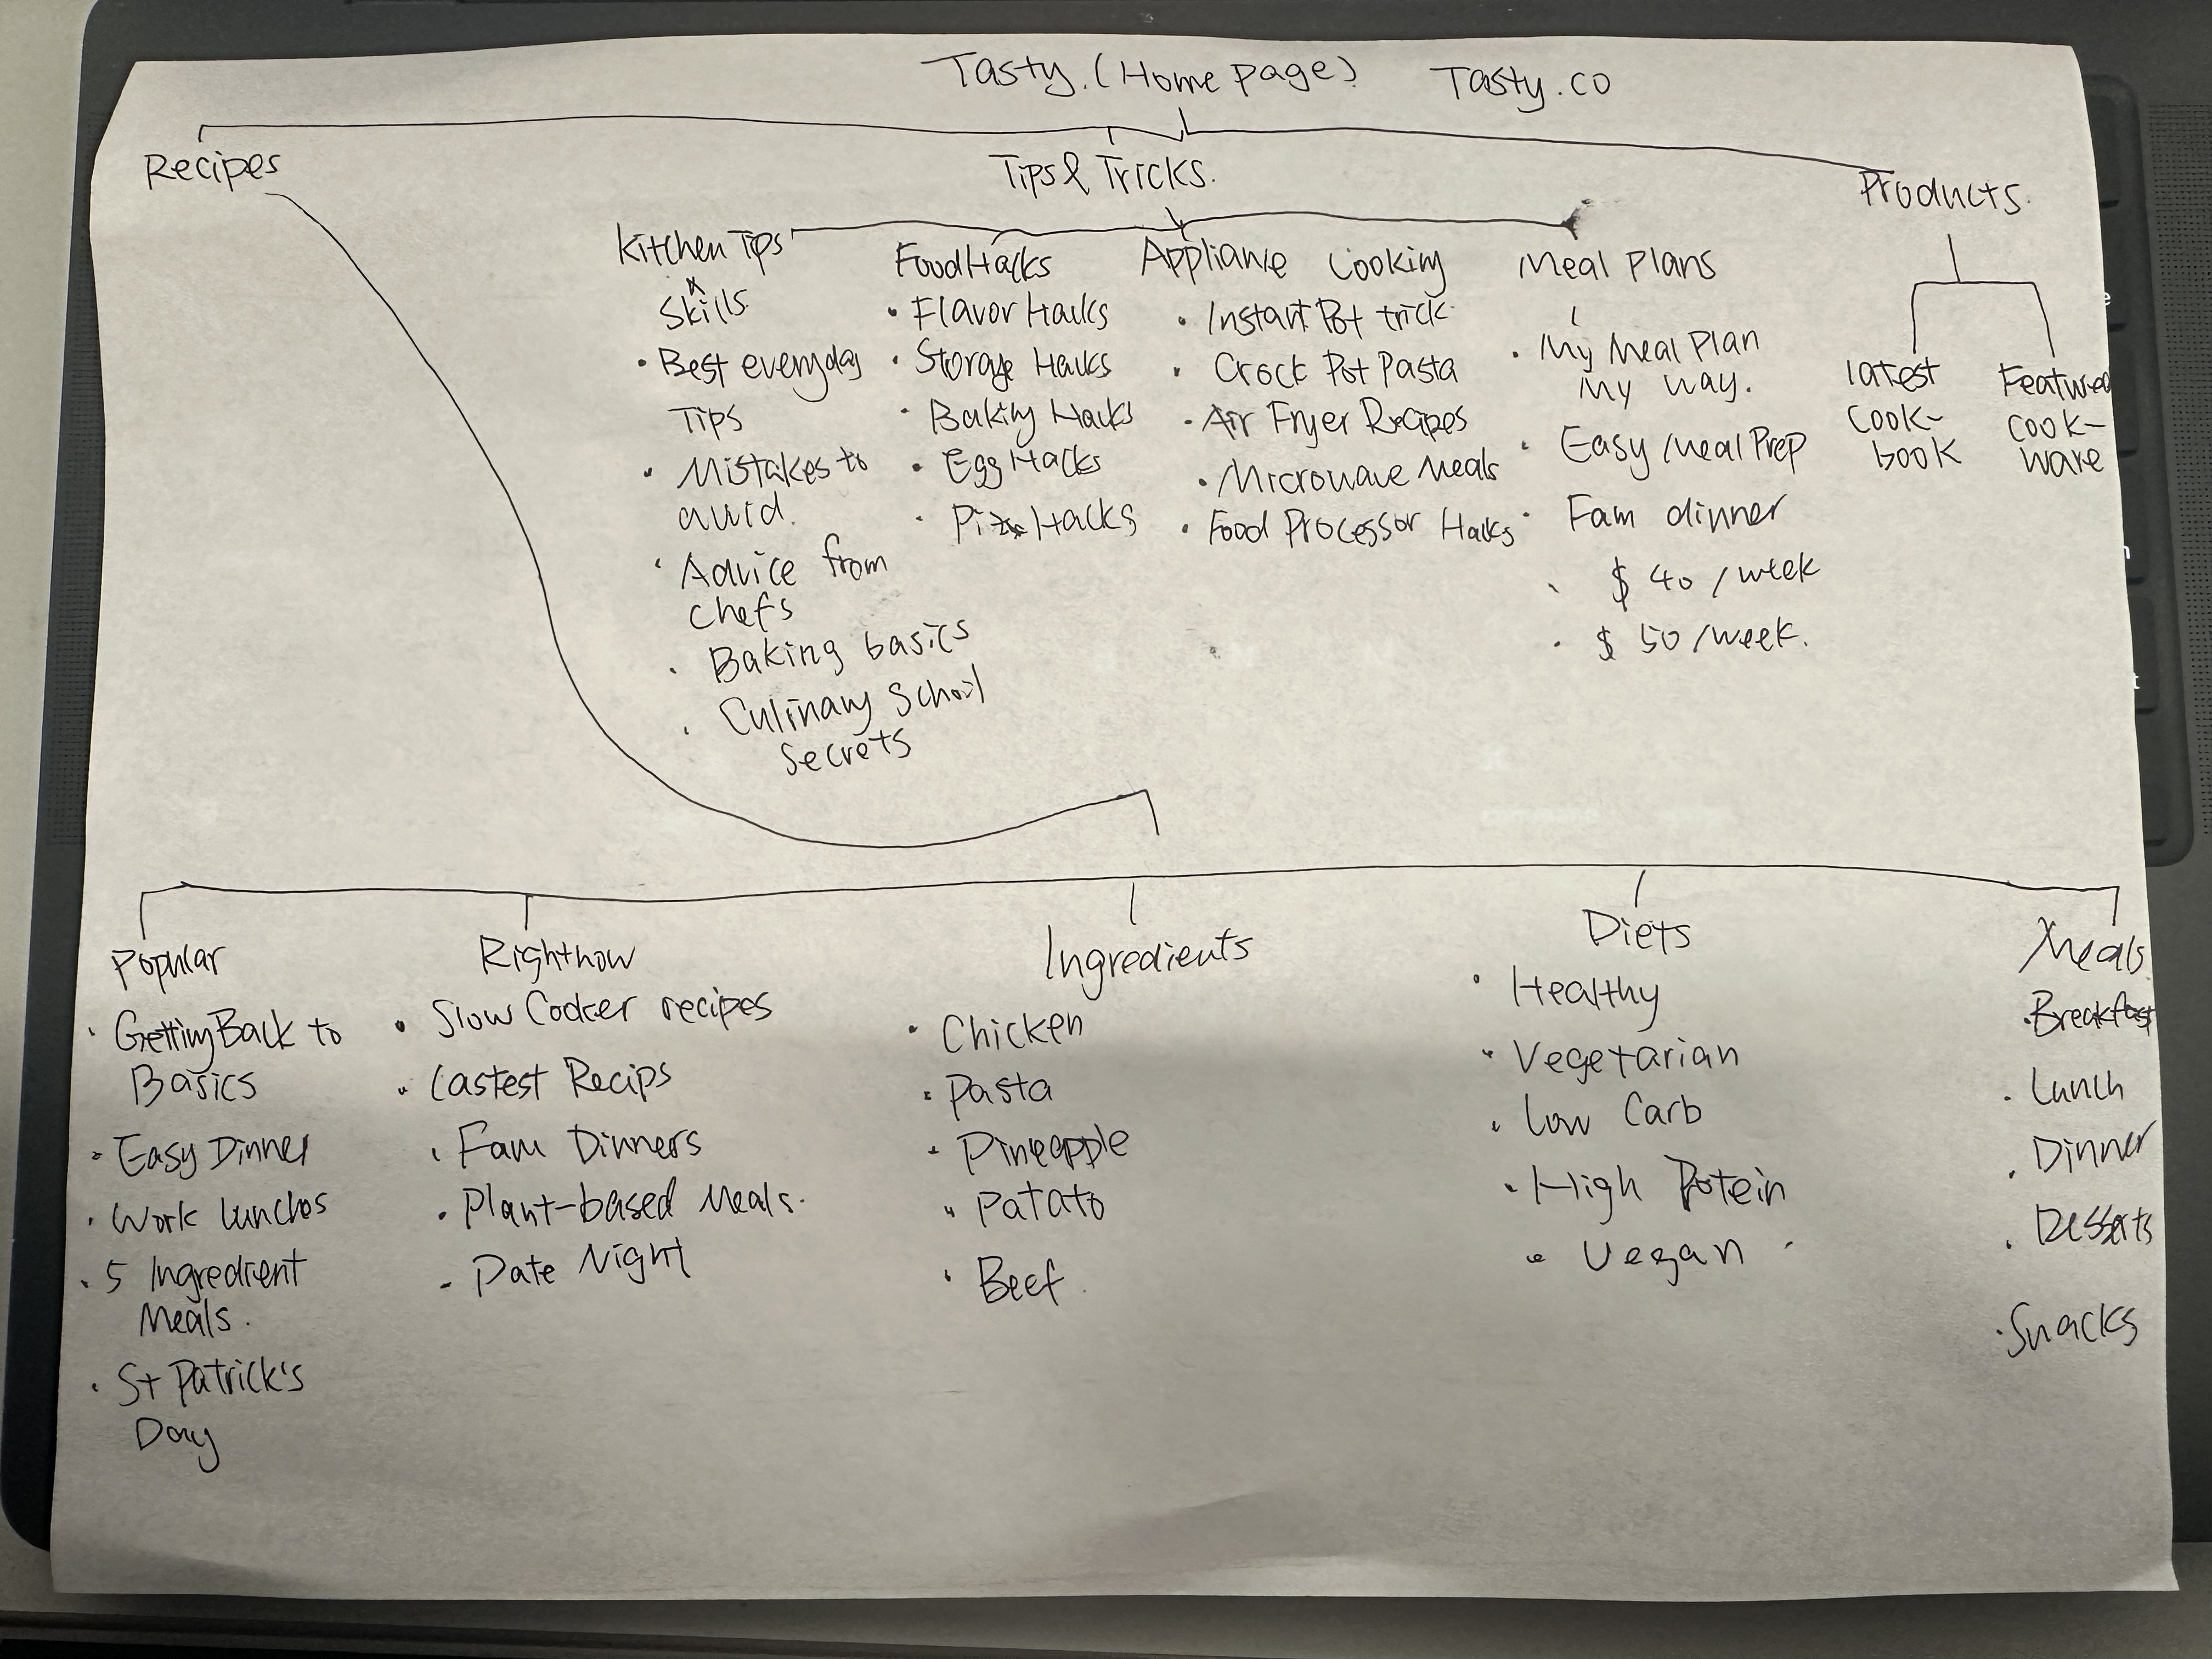 Tasty. (Home page) Tasty.co
Recipes
Tips & Tricks.
Products.
Kitchen Tips
& Skills
• Best everyday
Tips
• Mistakes to
avoid.
• Advice from
chefs
• Baking basics
• Culinary School
Secrets
Food Hacks
• Flavor Hacks
• Storage Hacks
• Baking Hacks
• Egg Hacks
• Pizza Hacks
Appliance Cooking
• Instant Pot trick.
• Crock Pot Pasta
• Air Fryer Recipes
• Microwave Meals
• Food Processor Hacks
Meal Plans
• My Meal Plan
My way.
• Easy Meal Prep
• Fam dinner
• $ 40 / week
• $ 50 / week.
latest
Cook-
book
Featured
Cook-
ware
Popular
• Getting Back to
Basics
• Easy Dinner
• Work lunches
• 5 Ingredient
Meals.
• St Patrick's
Day
Right now
• Slow Cooker recipes
• Lastest Recips
• Fam Dinners
• Plant-based Meals.
• Date Night
Ingredients
• Chicken
• Pasta
• Pineapple
• Patato
• Beef
Diets
• Healthy
• Vegetarian
• Low Carb
• High Protein
• Vegan.
Meals
• Breakfast
• Lunch
• Dinner
• Desserts
• Snacks